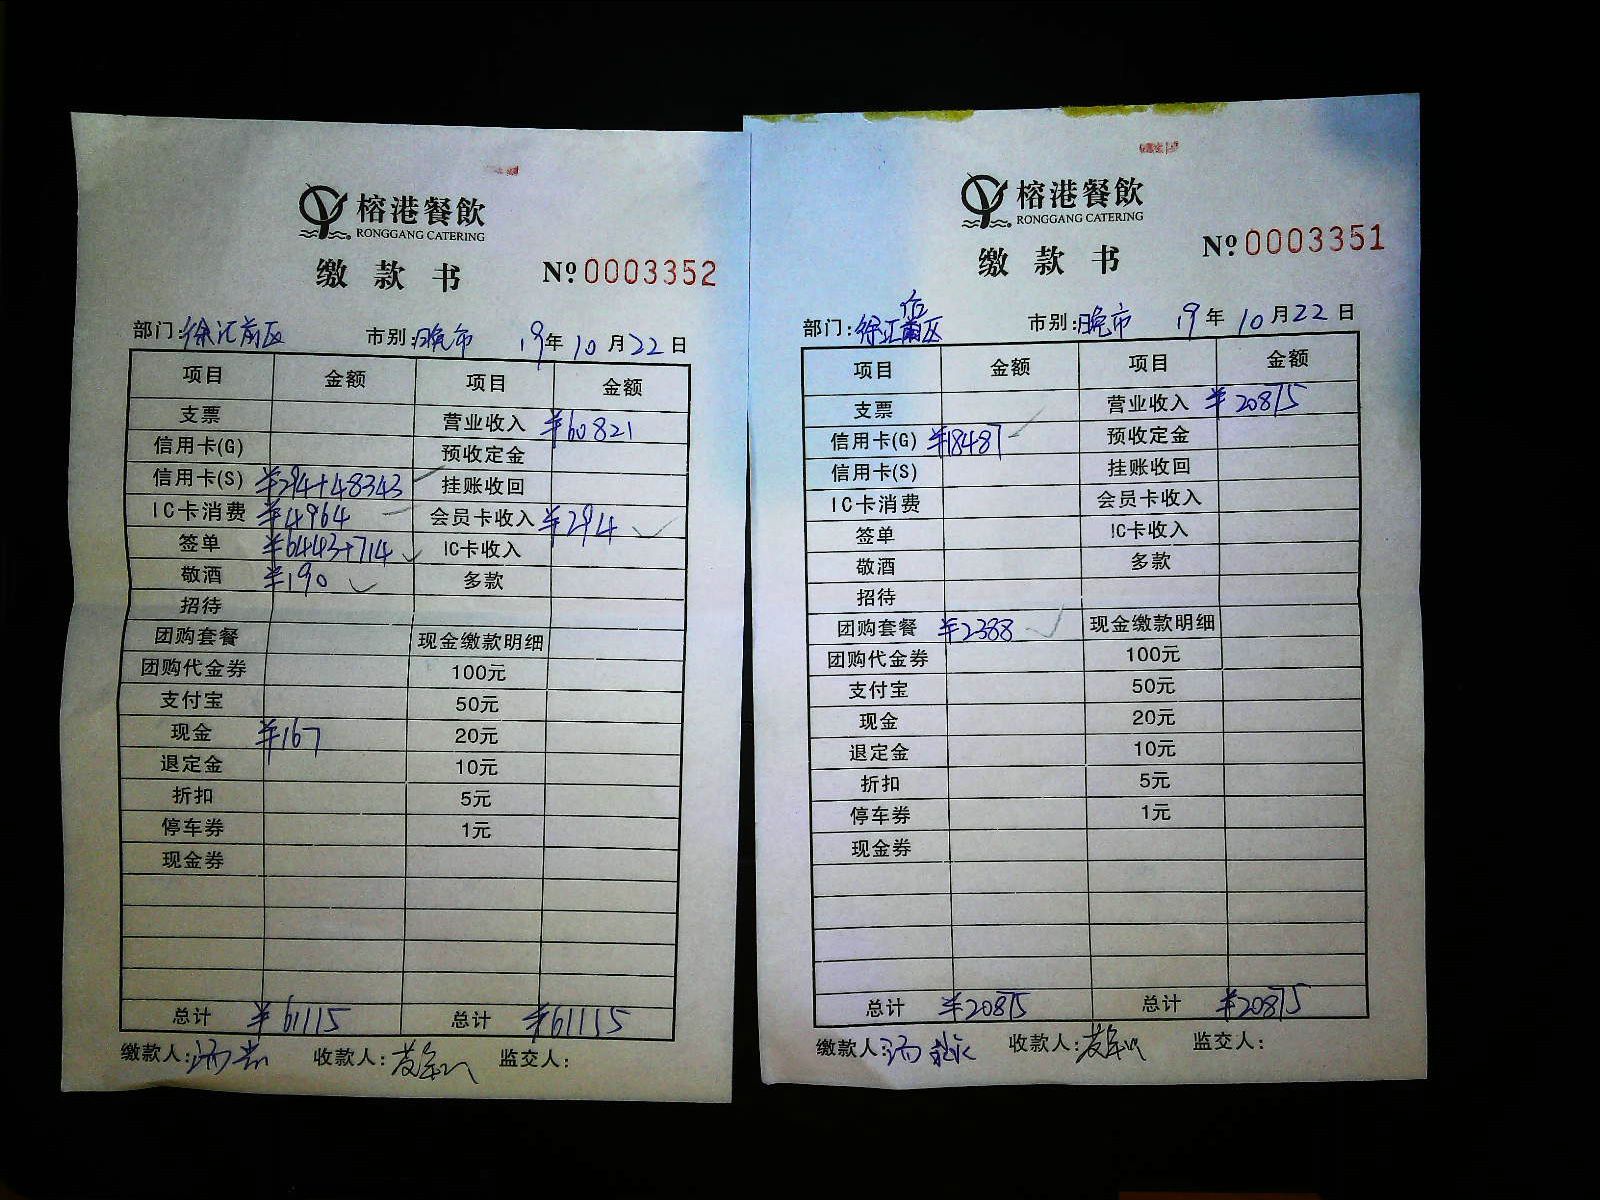 榕港餐飲
RONGGANG CATERING
缴款书 №0003352
部门:徐汇前区 市别:晚市 19年10月22日
项目 金额 项目 金额
支票 营业收入 ¥60821
信用卡(G) 预收定金
信用卡(S) ¥294+48343 挂账收回
IC卡消费 ¥4964 会员卡收入 ¥294
签单 ¥6443+714 IC卡收入
敬酒 ¥190 多款
招待
团购套餐 现金缴款明细
团购代金券 100元
支付宝 50元
现金 ¥167 20元
退定金 10元
折扣 5元
停车券 1元
现金券
总计 ¥61115 总计 ¥61115
缴款人: 收款人: 监交人:
榕港餐飲
RONGGANG CATERING
缴款书 №0003351
后
部门:徐汇区 市别:晚市 19年10月22日
项目 金额 项目 金额
支票 营业收入 ¥20875
信用卡(G) ¥18487 预收定金
信用卡(S) 挂账收回
IC卡消费 会员卡收入
签单 IC卡收入
敬酒 多款
招待
团购套餐 ¥2388 现金缴款明细
团购代金券 100元
支付宝 50元
现金 20元
退定金 10元
折扣 5元
停车券 1元
现金券
总计 ¥20875 总计 ¥20875
缴款人: 收款人: 监交人: